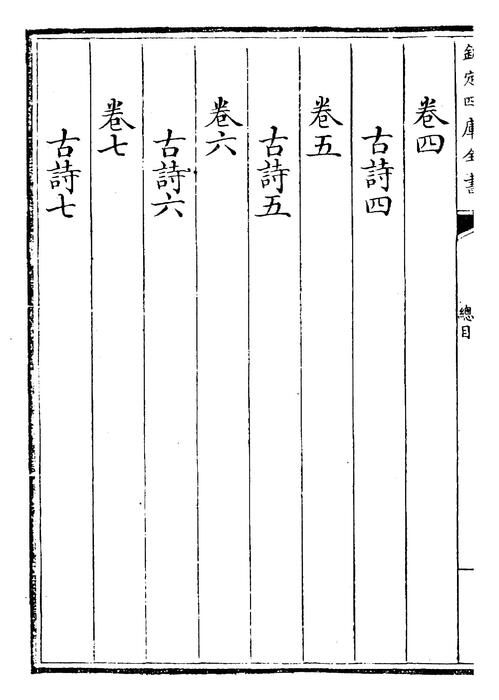 欽定四庫全書
總目
卷四
古詩四
卷五
古詩五
卷六
古詩六
卷七
古詩七